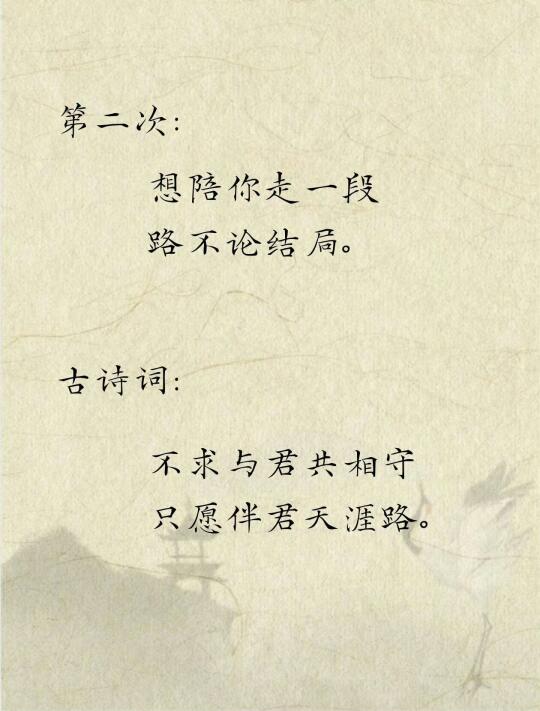 第二次:
想陪你走一段
路不论结局。
古诗词:
不求与君共相守
只愿伴君天涯路。